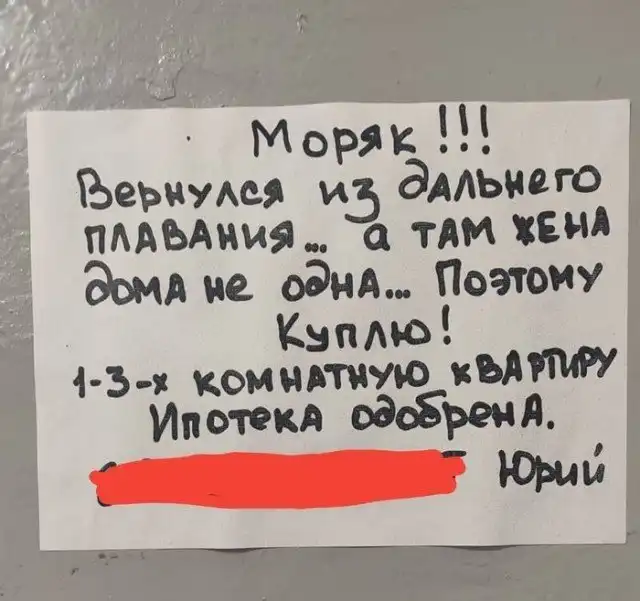 Моряк !!!
Вернулся из дальнего
плавания... а там жена
дома не одна... Поэтому
Куплю!
1-3-х комнатную квартиру
Ипотека одобрена.
Юрий